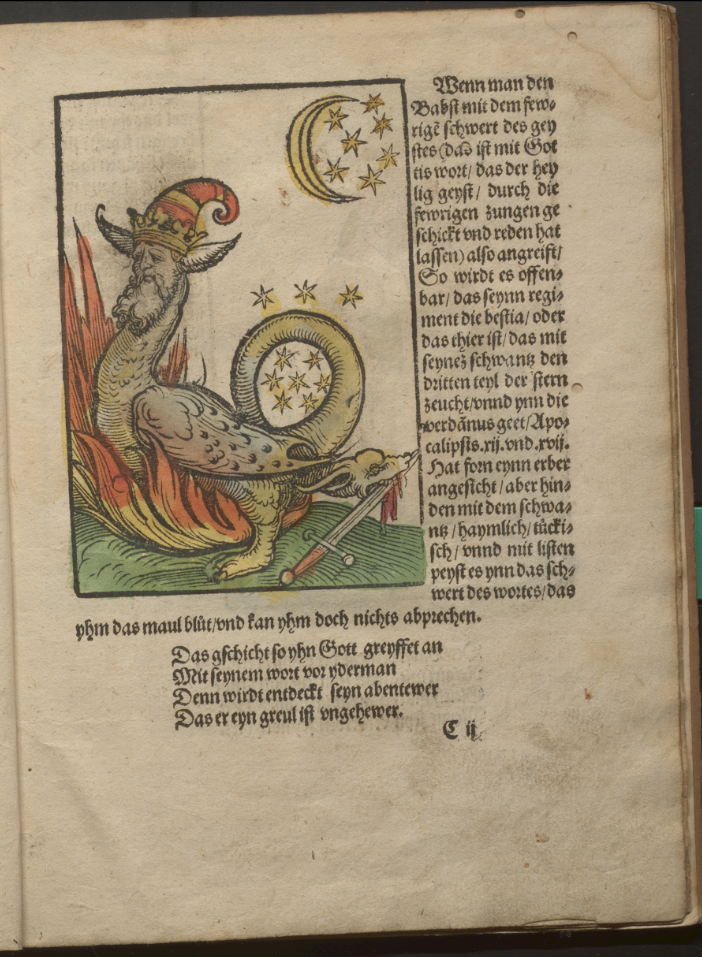 Wenn man den
Babst mit dem few⸗
rigē schwert des gey
stes (das ist mit Got
tis wort/ das der hey
lig geyst/ durch die
fewrigen zungen ge
schickt vnd reden hat
lassen) also angreift/
So wirdt es offen⸗
bar/ das seynn regi⸗
ment die bestia/ oder
das thier ist/ das mit
seynez schwantz den
dritten teyl der stern
zeucht/vnnd ynn die
verdānus geet/Apo⸗
calipsis.xij.vnd.xvij.
Hat forn eynn erber
angesicht/ aber hin⸗
den mit dem schwa⸗
ntz/ haymlich/ tücki⸗
sch/ vnnd mit listen
peyst es ynn das sch⸗
wert des wortes/ das
yhm das maul blüt/vnd kan yhm doch nichts abprechen.
Das gschicht so yhn Gott greyffet an
Mit seynem wort vor yderman
Denn wirdt entdeckt seyn abentewer
Das er eyn greul ist vngehewer.
C ij